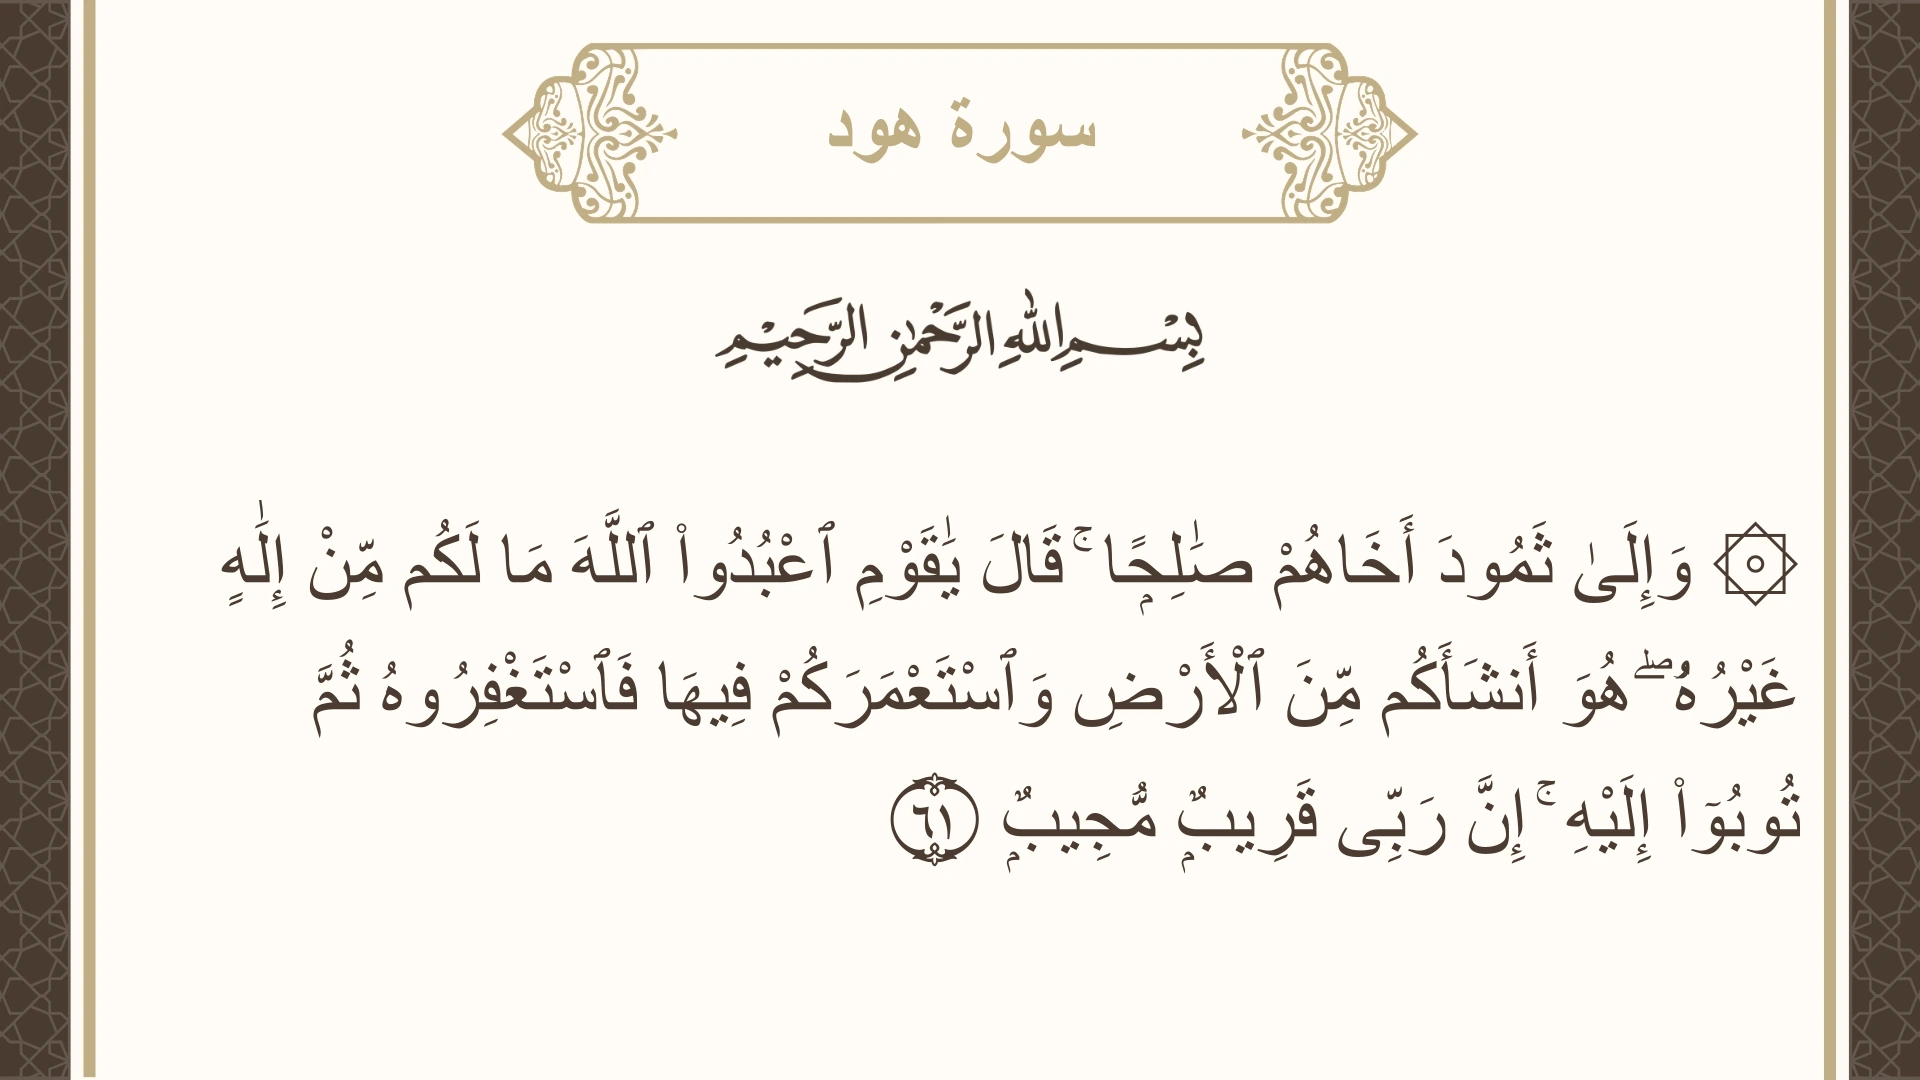 سورة هود
بِسْمِ اللهِ الرَّحْمٰنِ الرَّحِيْمِ
۞ وَإِلَىٰ ثَمُودَ أَخَاهُمْ صَٰلِحًۭا ۚ قَالَ يَٰقَوْمِ ٱعْبُدُوا۟ ٱللَّهَ مَا لَكُم مِّنْ إِلَٰهٍ
غَيْرُهُۥ ۖ هُوَ أَنشَأَكُم مِّنَ ٱلْأَرْضِ وَٱسْتَعْمَرَكُمْ فِيهَا فَٱسْتَغْفِرُوهُ ثُمَّ
تُوبُوٓا۟ إِلَيْهِ ۚ إِنَّ رَبِّى قَرِيبٌۭ مُّجِيبٌۭ ٦١